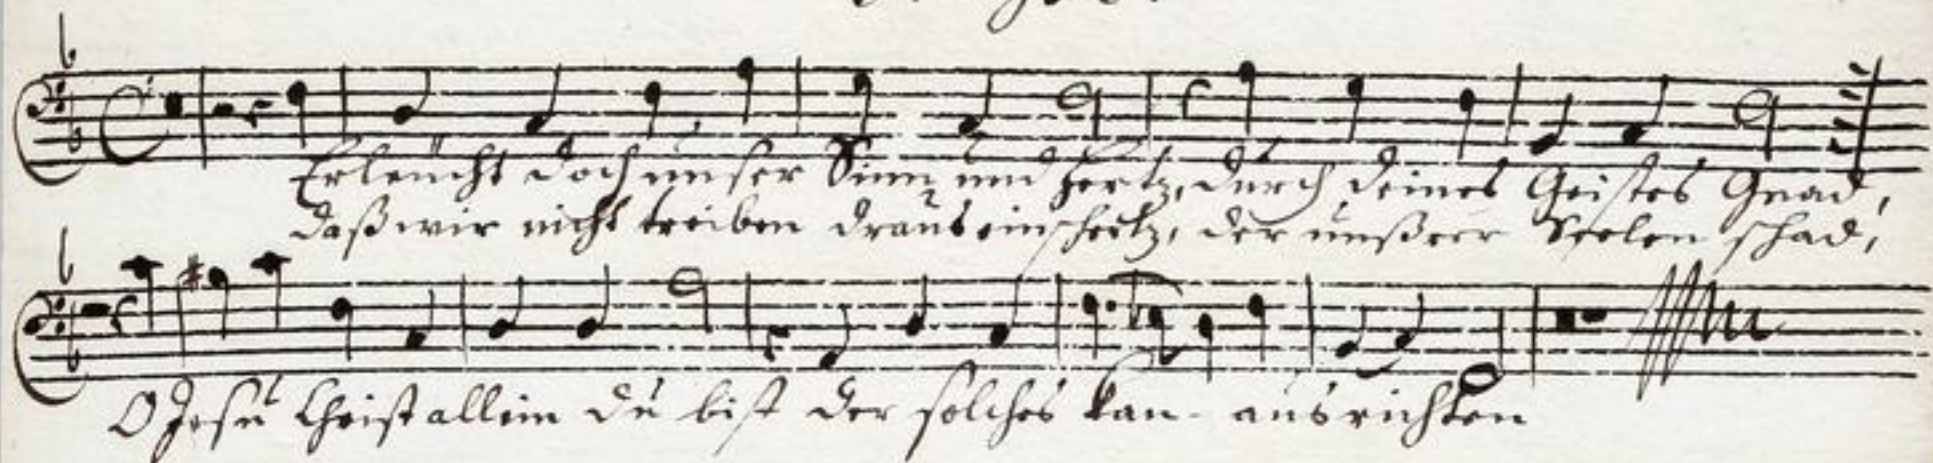 Erleücht doch unser Sinn und Hertz, durch deines Geistes Gnad,
daß wir nicht treiben draus ein schertz, der unßrer Seelen schad,
O Jesu Christ allein du bist der solches kan ausrichten